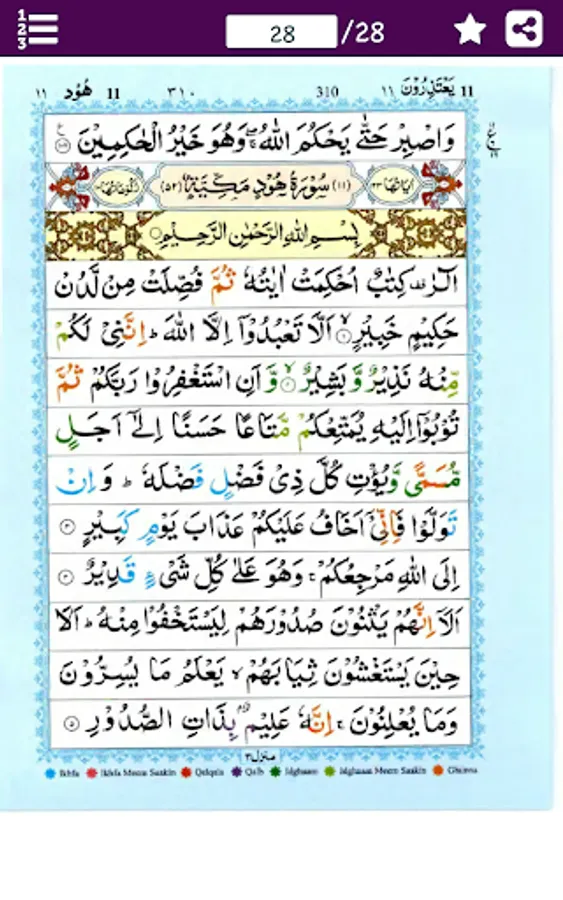 28 /28
11 يَعْتَذِرُوْنَ ١١ 310 ٣١٠ 11 هُوْد ١١
وَاصْبِرْ حَتّٰى يَحْكُمَ اللّٰهُ ۖۚ وَهُوَ خَيْرُ الْحٰكِمِيْنَ
اٰيَاتُهَا ١٢٣ (١١) سُوْرَةُ هُوْدٍ مَكِّيَّةٌ (٥٢) رُكُوْعَاتُهَا ١٠
بِسْمِ اللّٰهِ الرَّحْمٰنِ الرَّحِيْمِ
الٓرٰ ۚ كِتٰبٌ اُحْكِمَتْ اٰيٰتُهٗ ثُمَّ فُصِّلَتْ مِنْ لَّدُنْ
حَكِيْمٍ خَبِيْرٍ ۙ١ اَلَّا تَعْبُدُوْٓا اِلَّا اللّٰهَ ؕ اِنَّنِيْ لَكُمْ
مِّنْهُ نَذِيْرٌ وَّبَشِيْرٌ ۙ٢ وَّاَنِ اسْتَغْفِرُوْا رَبَّكُمْ ثُمَّ
تُوْبُوْٓا اِلَيْهِ يُمَتِّعْكُمْ مَّتَاعًا حَسَنًا اِلٰٓى اَجَلٍ
مُّسَمًّى وَّيُؤْتِ كُلَّ ذِيْ فَضْلٍ فَضْلَهٗ ؕ وَاِنْ
تَوَلَّوْا فَاِنِّيْٓ اَخَافُ عَلَيْكُمْ عَذَابَ يَوْمٍ كَبِيْرٍ ٣
اِلَى اللّٰهِ مَرْجِعُكُمْ ۚ وَهُوَ عَلٰى كُلِّ شَيْءٍ قَدِيْرٌ ٤
اَلَآ اِنَّهُمْ يَثْنُوْنَ صُدُوْرَهُمْ لِيَسْتَخْفُوْا مِنْهُ ؕ اَلَا
حِيْنَ يَسْتَغْشُوْنَ ثِيَابَهُمْ ۙ يَعْلَمُ مَا يُسِرُّوْنَ
وَمَا يُعْلِنُوْنَ ۚ اِنَّهٗ عَلِيْمٌۢ بِذَاتِ الصُّدُوْرِ ٥
منزل ٣
Ikhfa Ikhfa Meem Saakin Qalqala Qalb Idghaam Idghaam Meem Saakin Ghunna